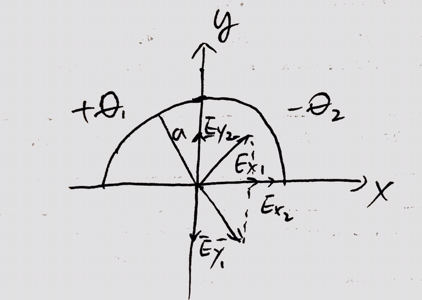 y
+Q₁
-Q₂
a
Ey₂
Ex₁
Ex₂
x
Ey₁